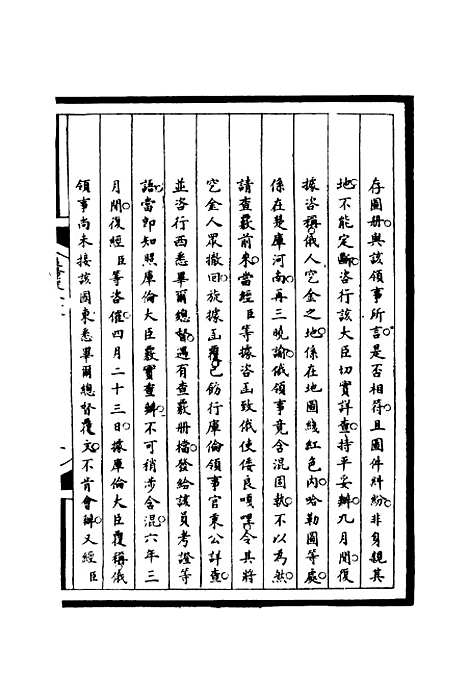 存圖册與該領事所言是否相符且圖件糾紛非身親其
地不能定斷咨行該大臣切實詳查持平妥辦九月間復
據咨稱俄人穵金之地係在地圖綫紅色內哈勒圖等處
係在楚庫河南再三曉諭俄領事竟含混固執不以為然
請查覈前來當經臣等據咨函致俄使倭良嘎哩令其將
穵金人眾撤回旋據函覆已飭行庫倫領事官秉公詳查
並咨行西悉畢爾總督遇有查覈册檔發給該員考證等
語當即知照庫倫大臣覈實查辦不可稍涉含混六年三
月間復經臣等咨催四月二十三日據庫倫大臣覆稱俄
領事尚未接該國東悉畢爾總督覆文不肯會辦又經臣